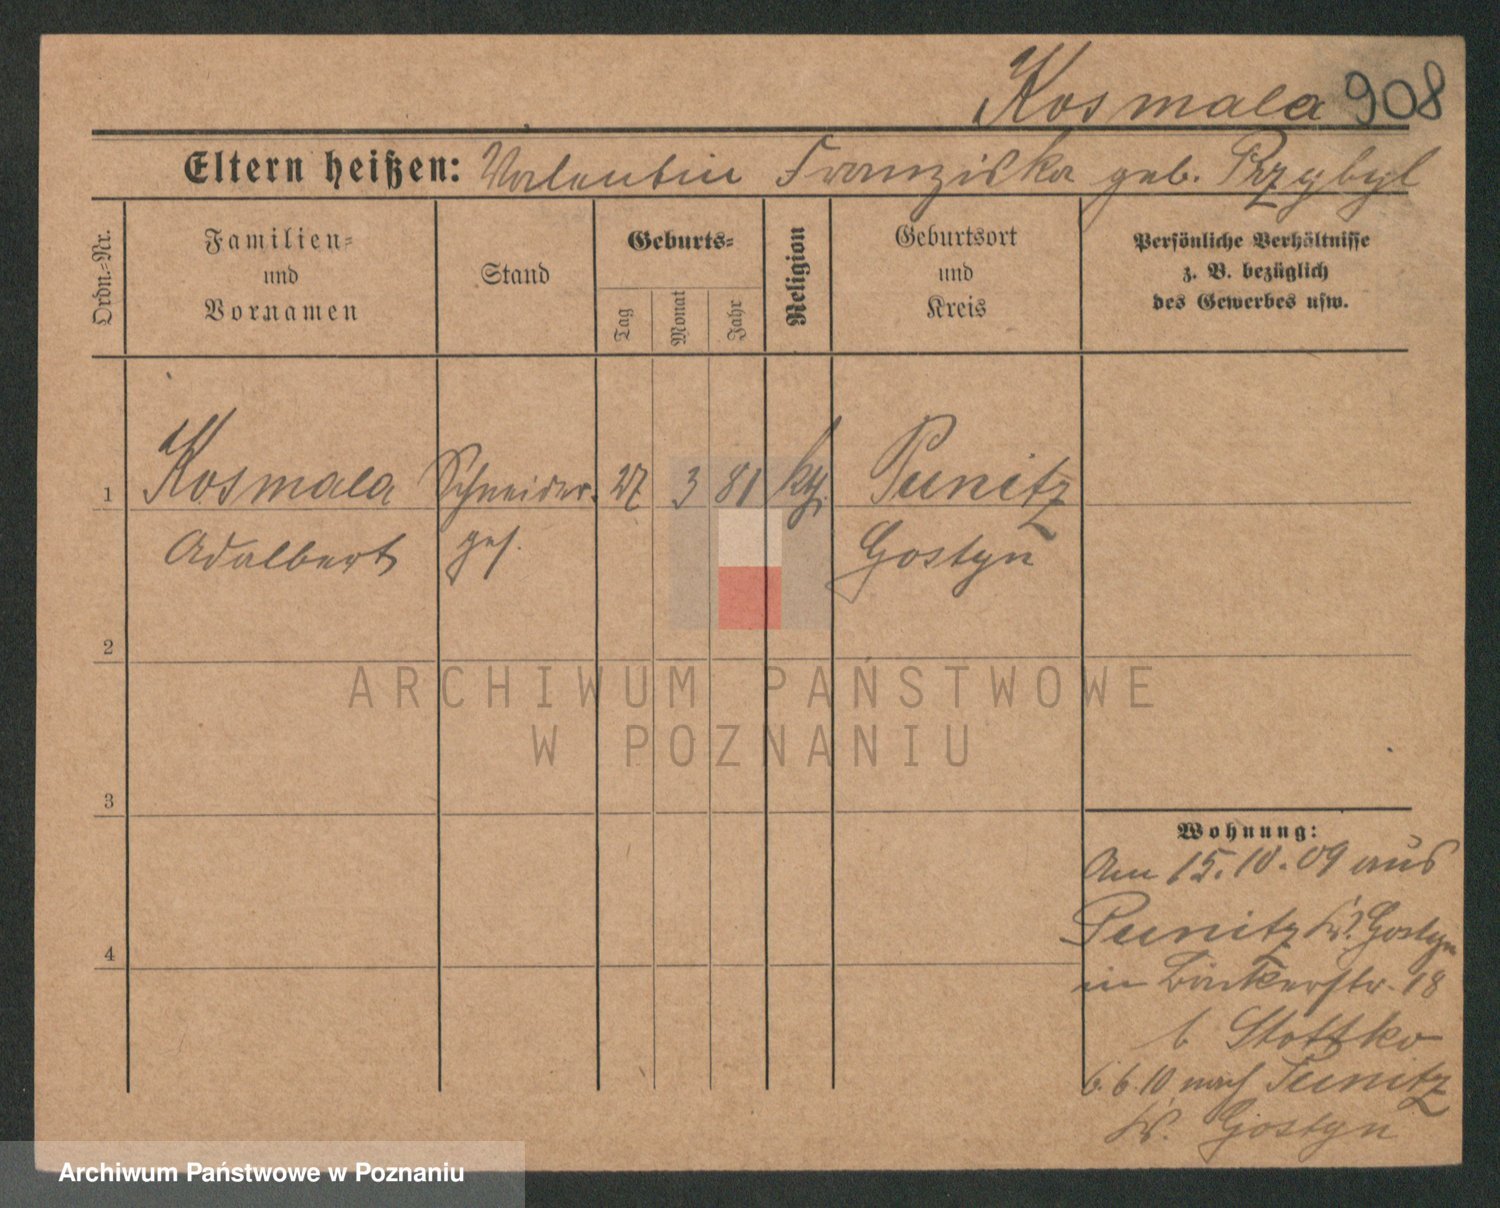 Kosmala 908
Eltern heißen: Valentin Franziska geb. Przybyl
Ordn.=Nr.
Familien=
und
Vornamen
Stand
Geburts=
Tag
Monat
Jahr
Religion
Geburtsort
und
Kreis
Persönliche Verhältnisse
z. B. bezüglich
des Gewerbes usw.
1 Kosmala Schneider- 27 3 81 kth. Punitz
Adalbert ges. Gostyn
2
3
4
Wohnung:
Am 15.10.09 aus
Punitz Kr. Gostyn
in Bäckerstr. 18
b
6.6.10 nach Punitz
Kr. Gostyn
ARCHIWUM PAŃSTWOWE
W POZNANIU
Archiwum Państwowe w Poznaniu